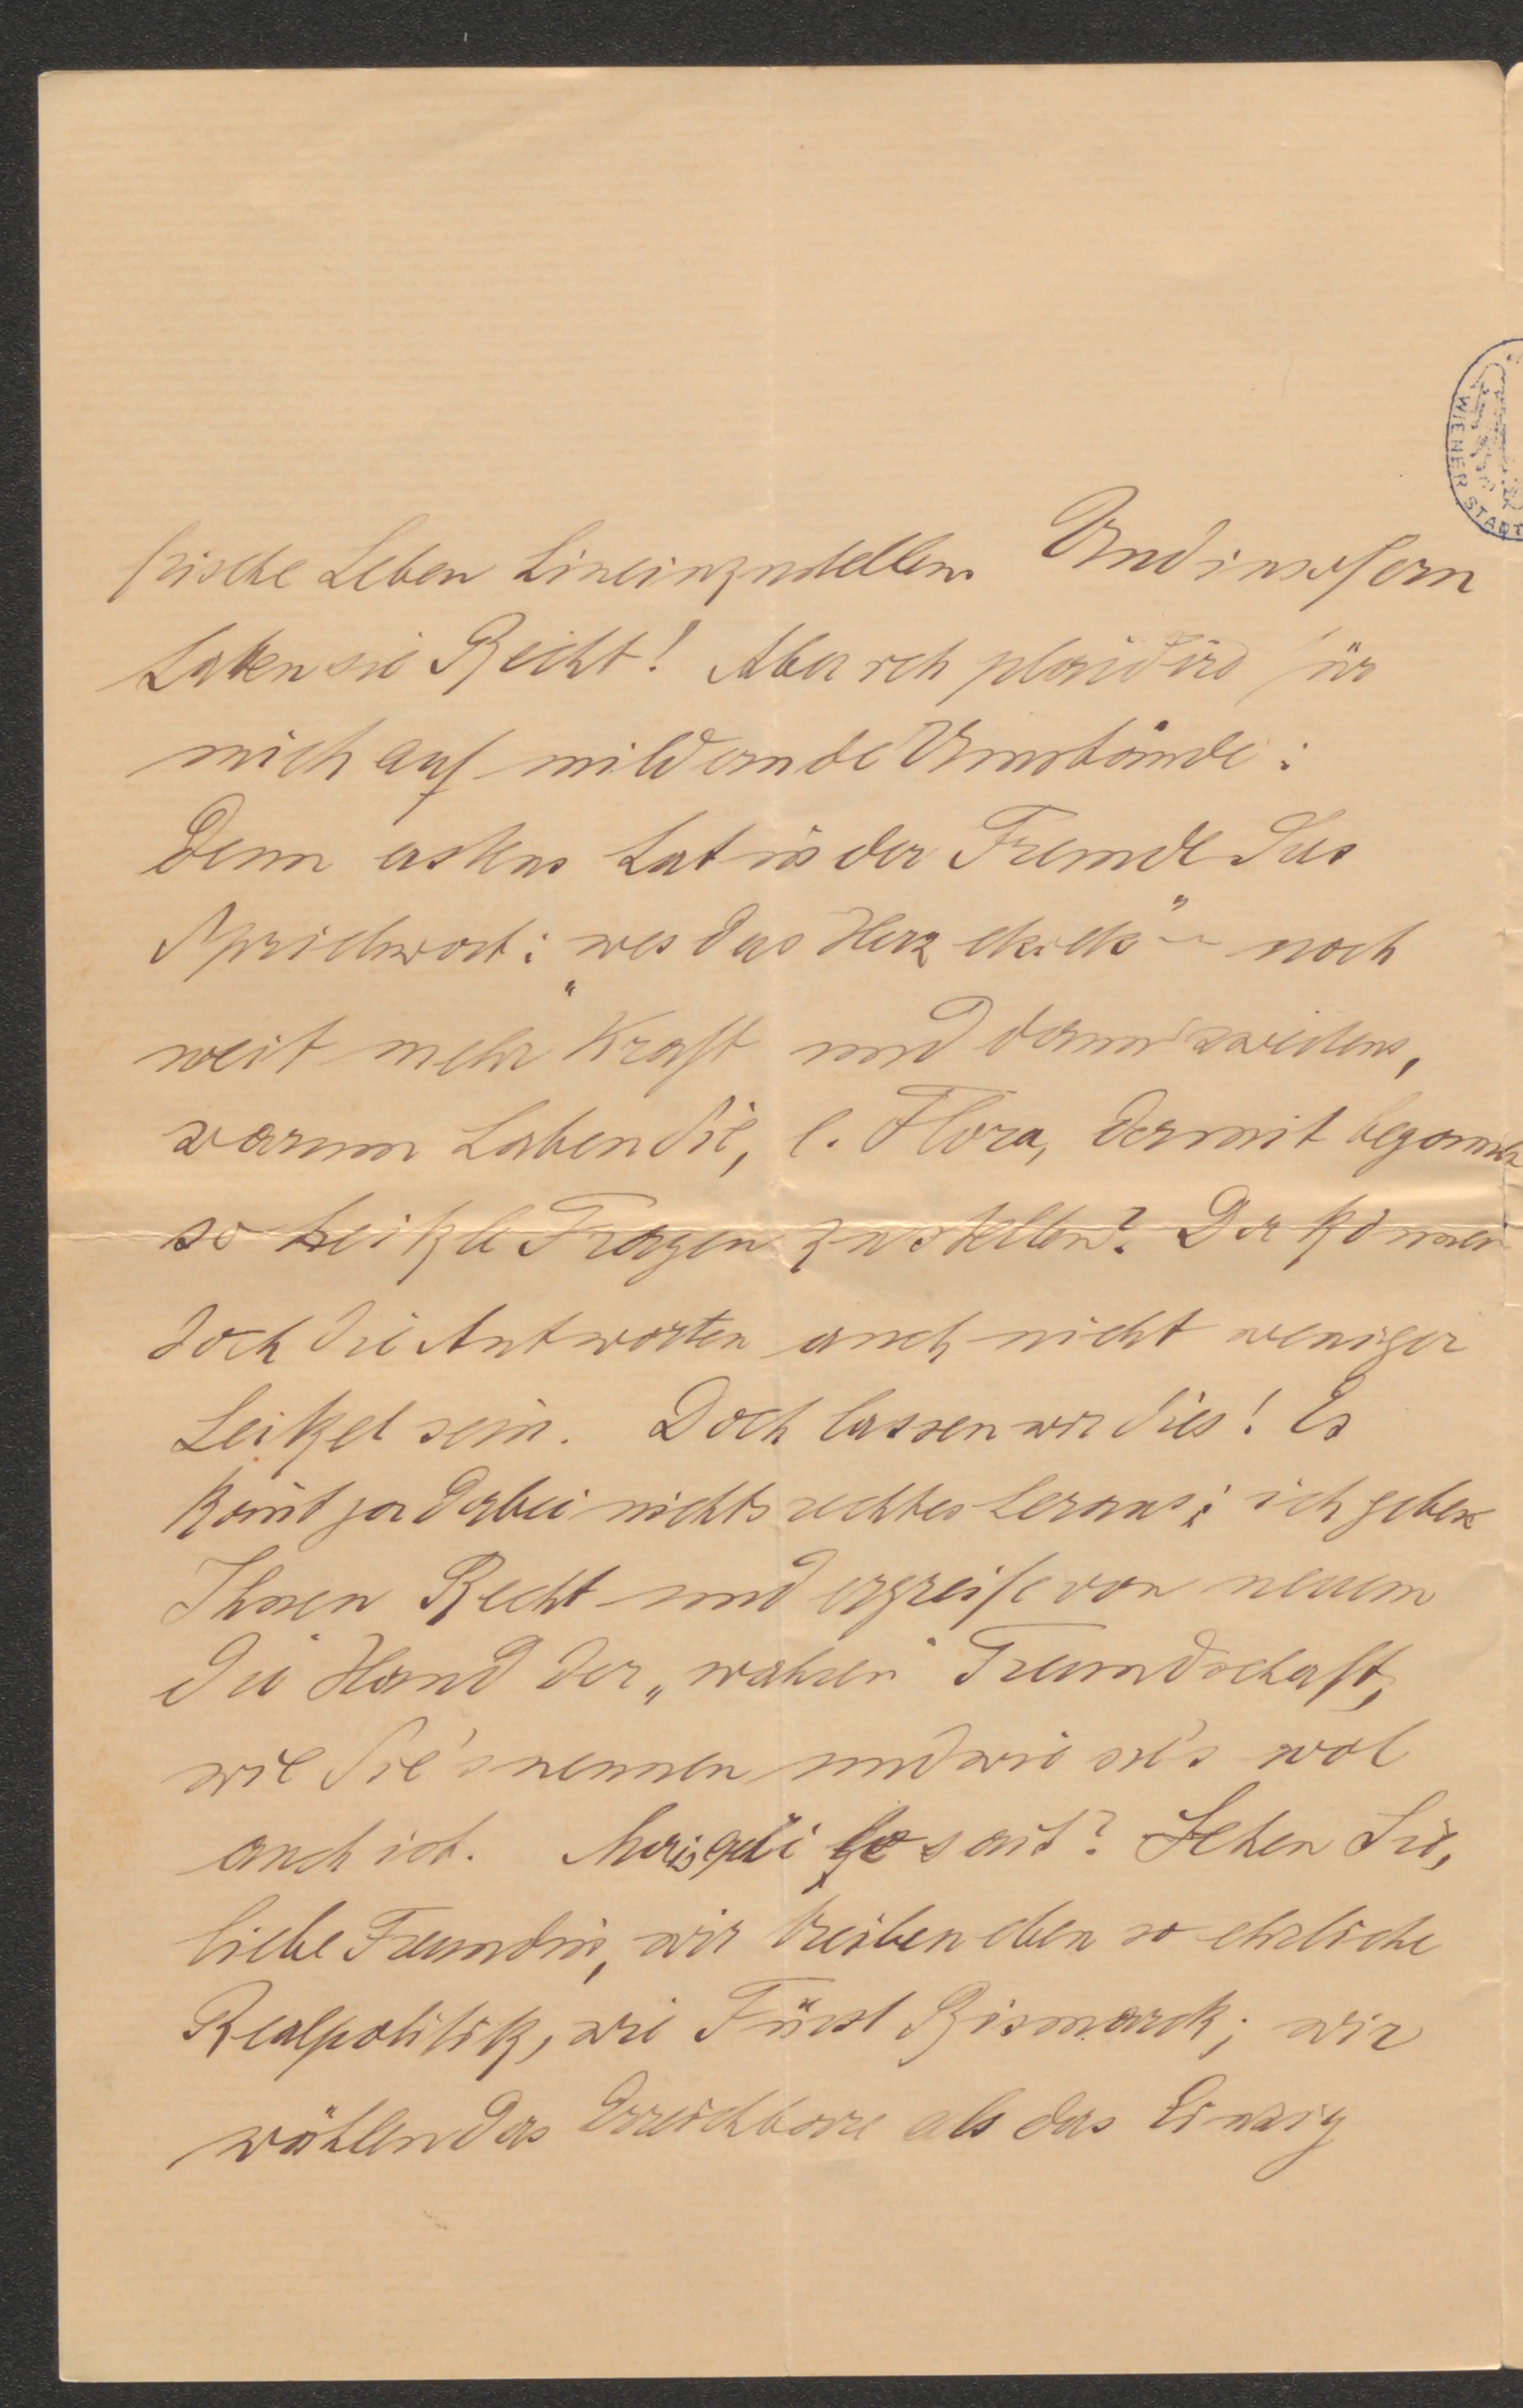 frische Leben hineinzustellen. Und insofern
hatten sie Recht! Aber ich plaidire für
mich auf mildernde Umstände:
Denn erstens hat in der Fremde das
Sprichwort: „wes das Herz noch
weit mehr Kraft und dann zweitens,
warum haben Sie, l. Flora, damit begonnen
so heikle Fragen zu stellen? Da können
doch die Antworten auch nicht weniger
heikel sein. Doch lassen wir dies! Es
kom̄t ja dabei nichts rechtes heraus; ich gebe
Ihnen Recht und ergreife von neuem
die Hand der „wahren Freundschaft,
wie Sie's nennen und wie sie's wol
auch ist. Mais qui lo sait? Sehen Sie,
liebe Freundin, wir treiben eben so ehrliche
Realpolitik, wie Fürst Bismarck; wir
wählen das Erreichbare als das Einzig
WIENER STADT